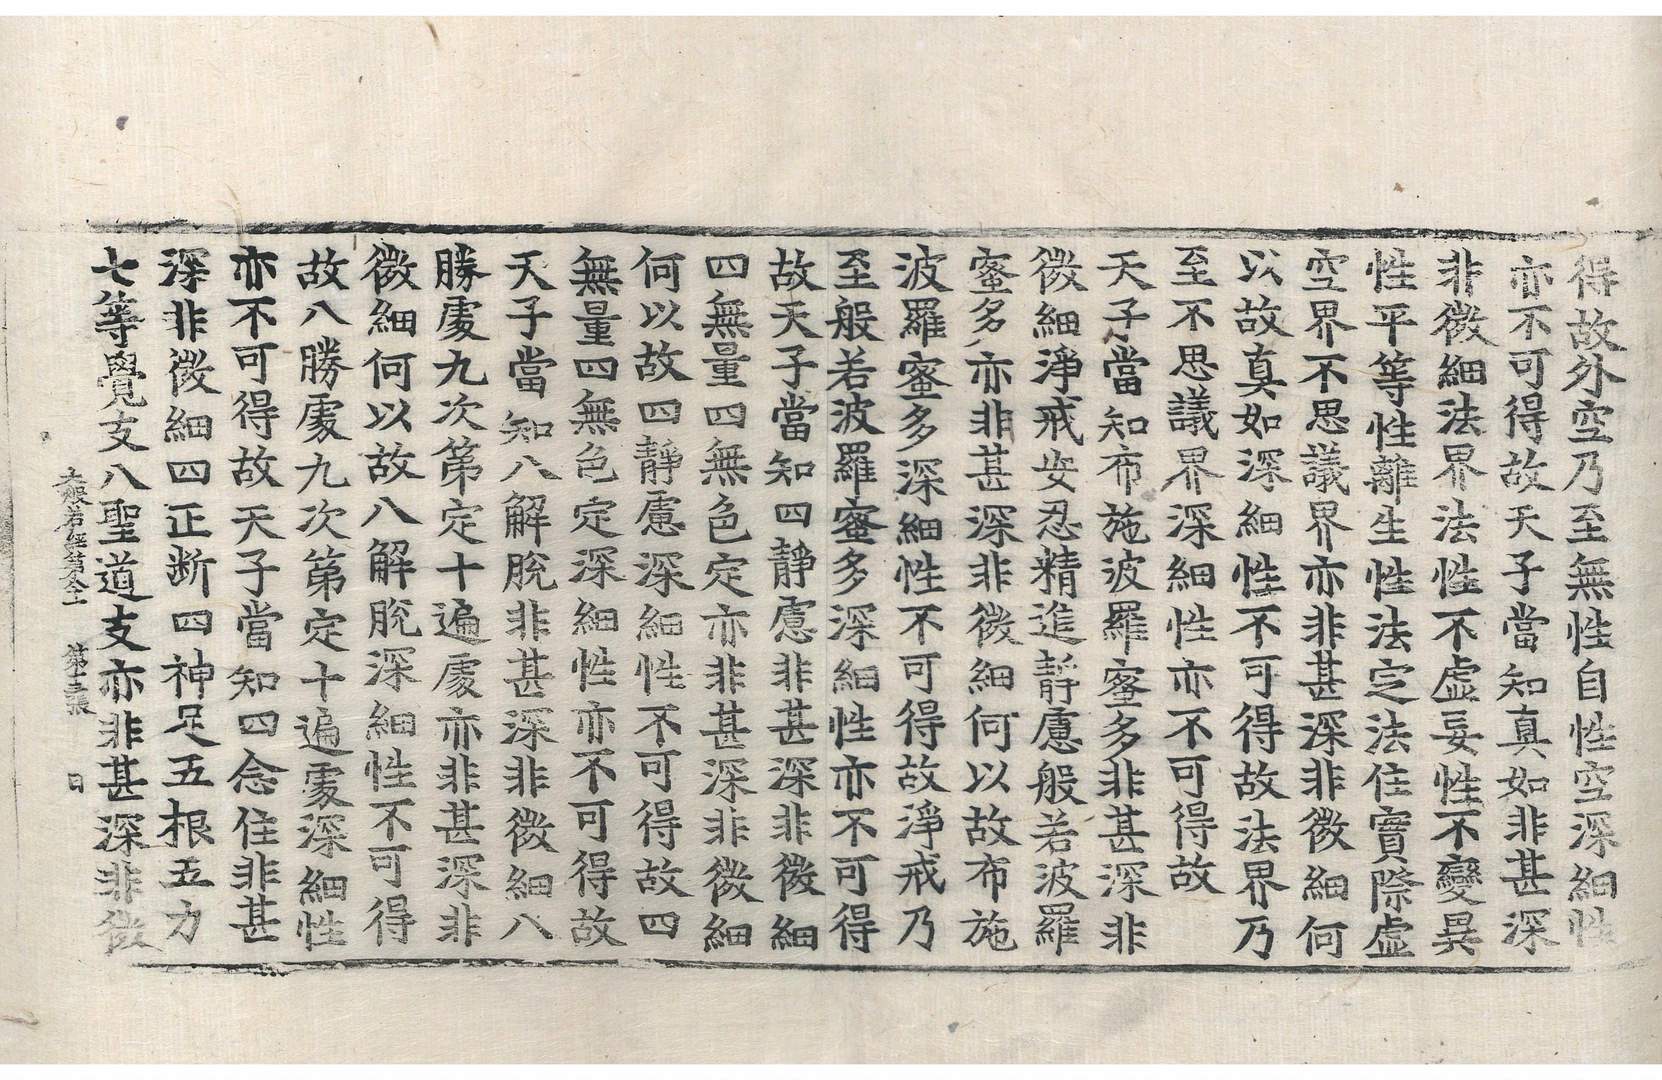 得故外空乃至無性自性空深細性
亦不可得故天子當知真如非甚深
非微細法界法性不虛妄性不變異
性平等性離生性法定法住實際虛
空界不思議界亦非甚深非微細何
以故真如深細性不可得故法界乃
至不思議界深細性亦不可得故
天子當知布施波羅蜜多非甚深非
微細淨戒安忍精進靜慮般若波羅
蜜多亦非甚深非微細何以故布施
波羅蜜多深細性不可得故淨戒乃
至般若波羅蜜多深細性亦不可得
故天子當知四靜慮非甚深非微細
四無量四無色定亦非甚深非微細
何以故四靜慮深細性不可得故四
無量四無色定深細性亦不可得故
天子當知八解脫非甚深非微細八
勝處九次第定十遍處亦非甚深非
微細何以故八解脫深細性不可得
故八勝處九次第定十遍處深細性
亦不可得故天子當知四念住非甚
深非微細四正断四神足五根五力
七等覺支八聖道支亦非甚深非微
大般若經第 第 張 日